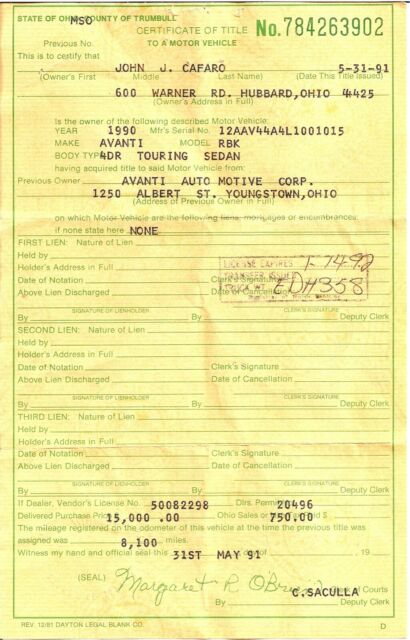 STATE OF OHIO, COUNTY OF TRUMBULL
MSO
CERTIFICATE OF TITLE No. 784263902
Previous No. TO A MOTOR VEHICLE
This is to certify that
JOHN J. CAFARO 5-31-91
(Owner's First Middle Last Name) (Date This Title Issued)
600 WARNER RD. HUBBARD,OHIO 44425
(Owner's Address in Full)
Is the owner of the following described Motor Vehicle:
YEAR 1990 Mfr's Serial No. 12AAV44A4L1001015
MAKE AVANTI MODEL RBK
BODY TYPE 4DR TOURING SEDAN
having acquired title to said Motor Vehicle from:
Previous Owner AVANTI AUTO MOTIVE CORP.
1250 ALBERT ST. YOUNGSTOWN,OHIO
(Address of Previous Owner in Full)
on which Motor Vehicle are the following liens, mortgages or encumbrances:
if none state here NONE
FIRST LIEN: Nature of Lien
Held by
Holder's Address in Full
LICENSE EXPIRES
TRANSFER ISSUED
TRUCK WT. EDH358
Date of Notation Clerk's Signature
Above Lien Discharged Date of Cancellation
SIGNATURE OF LIENHOLDER CLERK'S SIGNATURE
By By Deputy Clerk
SECOND LIEN: Nature of Lien
Held by
Holder's Address in Full
Date of Notation Clerk's Signature
Above Lien Discharged Date of Cancellation
SIGNATURE OF LIENHOLDER CLERK'S SIGNATURE
By By Deputy Clerk
THIRD LIEN: Nature of Lien
Held by
Holder's Address in Full
Date of Notation Clerk's Signature
Above Lien Discharged Date of Cancellation
SIGNATURE OF LIENHOLDER CLERK'S SIGNATURE
By By Deputy Clerk
If Dealer, Vendor's License No. 50082298 Dlrs. Permit 20496
Delivered Purchase Price 15,000 .00 Ohio Sales $ 750.00
The mileage registered on the odometer of this vehicle at the time the previous title was
assigned was 8,100 miles.
Witness my hand and official seal this 31ST MAY 91 day of , 19
(SEAL) Margaret R. O'Brien Clerk of Courts
C.SACULLA
By Deputy Clerk
REV. 12/81 DAYTON LEGAL BLANK CO. D